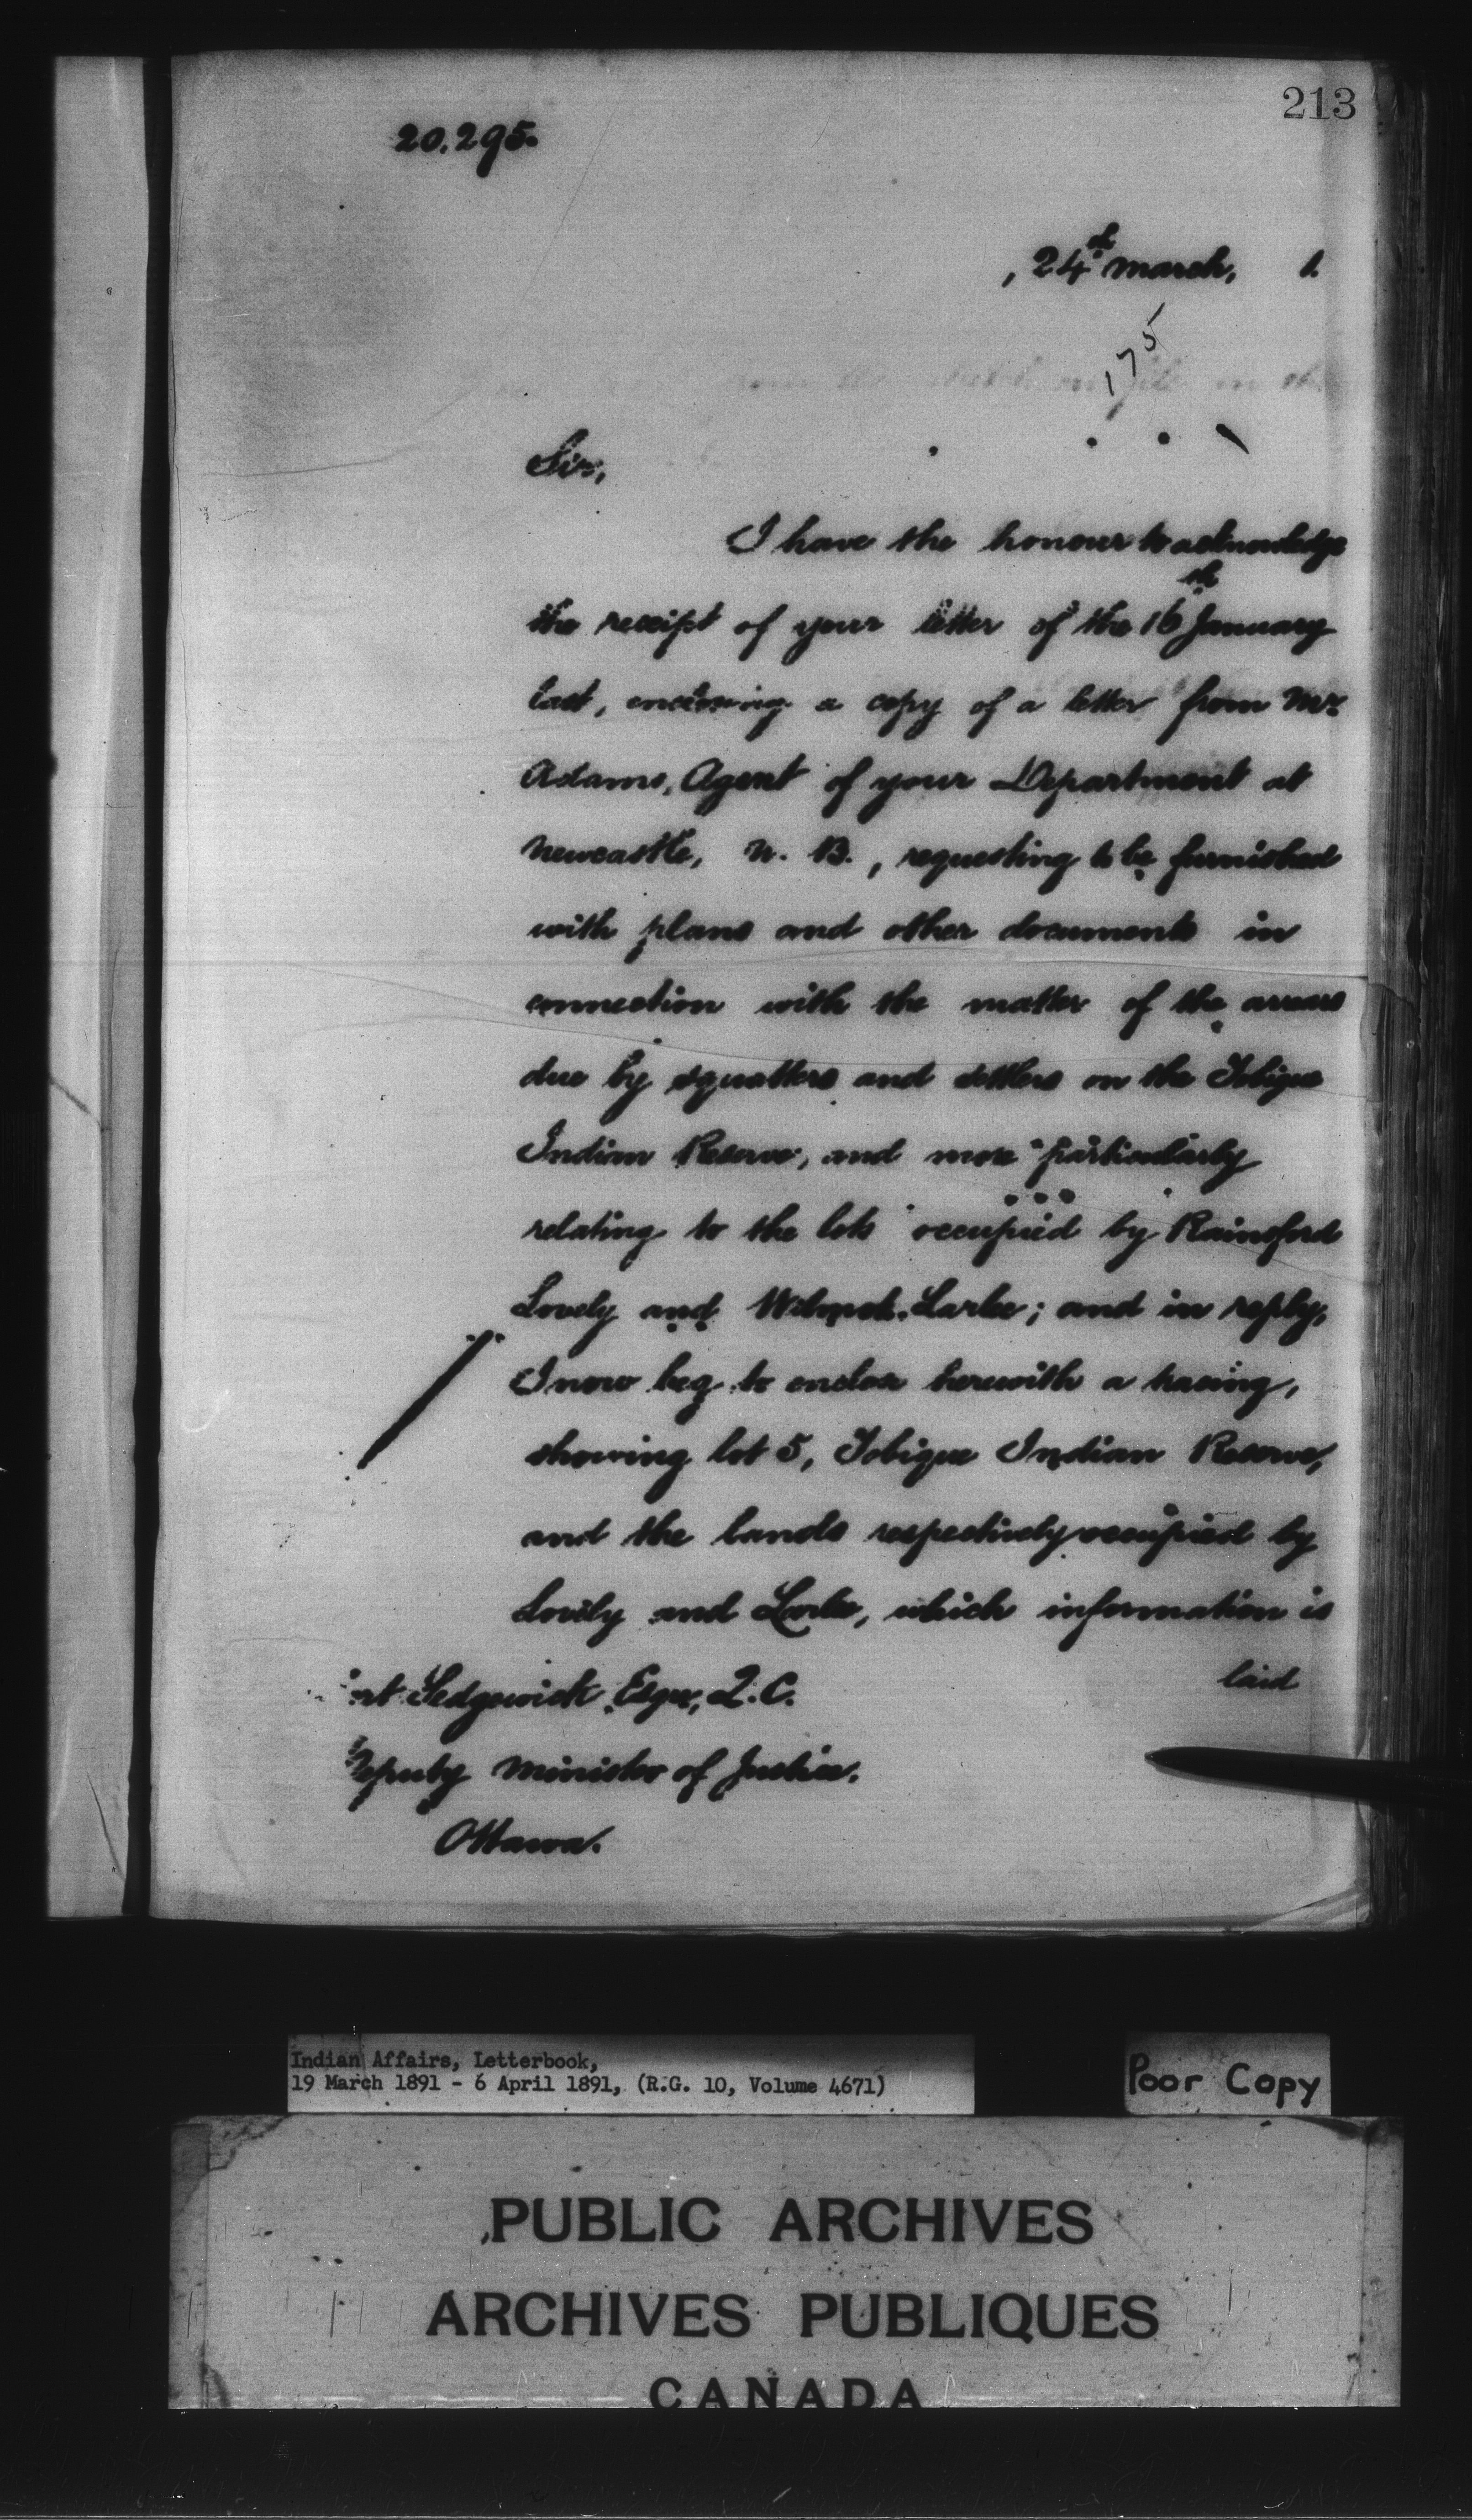 213
20.295.
, 24th March, 1.
175
Sir,
I have the honour to acknowledge
the receipt of your letter of the 16th January
last, enclosing a copy of a letter from Mr.
Adams, Agent of your Department at
Newcastle, N. B., requesting to be furnished
with plans and other documents in
connection with the matter of the arrears
due by squatters and settlers on the Tobique
Indian Reserve, and more particularly
relating to the lots occupied by Rainsford
Lovely and Wilmot Larlee; and in reply,
I now beg to enclose herewith a tracing,
showing lot 5, Tobique Indian Reserve,
and the lands respectively occupied by
Lovely and Larlee, which information is
laid
rt Sedgewick Esqre, Q.C.
Deputy Minister of Justice.
Ottawa.
Indian Affairs, Letterbook,
19 March 1891 - 6 April 1891, (R.G. 10, Volume 4671)
Poor Copy
PUBLIC ARCHIVES
ARCHIVES PUBLIQUES
CANADA